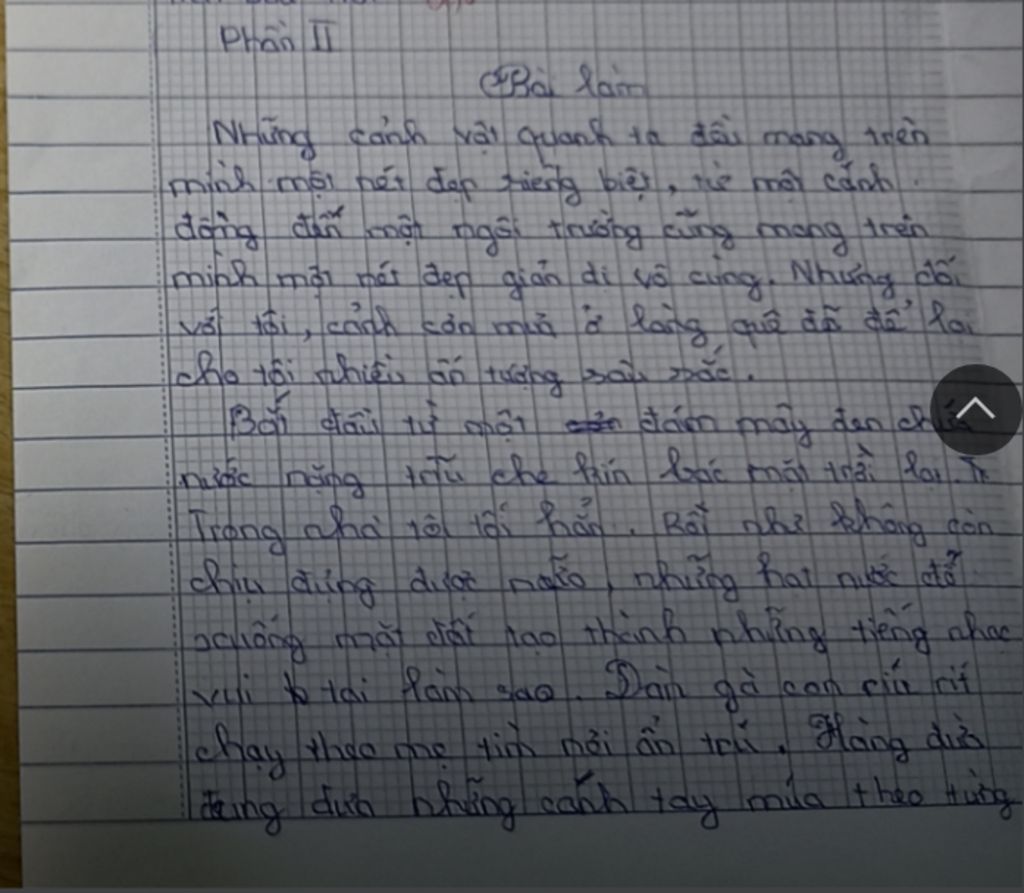 Phần II
Bài làm
Những cảnh vật quanh ta đều mang trên
mình một nét đẹp riêng biệt, từ một cánh
đồng đến một ngôi trường cũng mang trên
mình một nét đẹp giản dị vô cùng. Nhưng đối
với tôi, cảnh cơn mưa ở làng quê đã để lại
cho tôi nhiều ấn tượng sâu sắc.
Bắt đầu từ một đám mây đen chứa
nước nặng trĩu che kín bác mặt trời lại.
Trong nhà tôi tối hẳn. Rồi như không còn
chịu đựng được nữa, những hạt nước đổ
xuống mặt đất tạo thành những tiếng nhạc
vui tai làm sao. Đàn gà con ríu rít
chạy theo mẹ tìm nơi ẩn trú. Hàng dừa
đung đưa những cánh tay múa theo từng